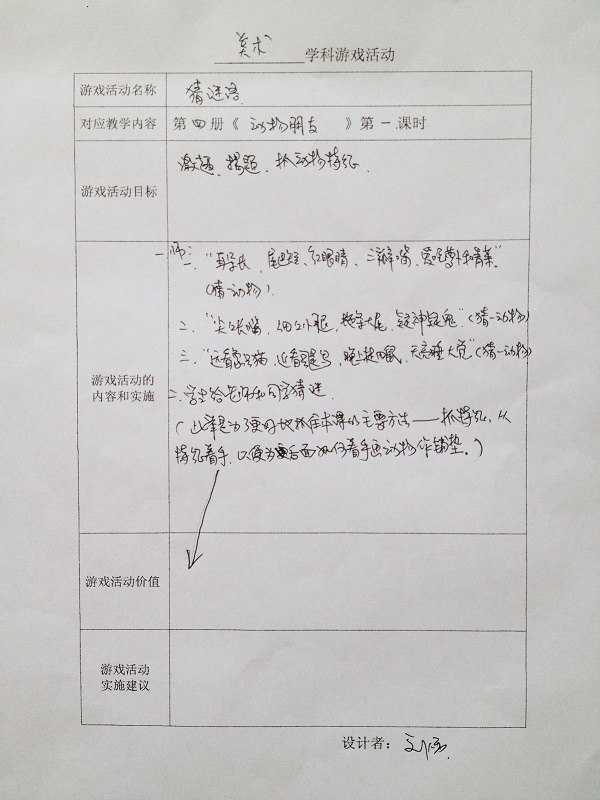 美术 学科游戏活动
游戏活动名称 猜谜语
对应教学内容 第四册《 动物朋友 》第一课时
游戏活动目标 激趣、揭题、抓动物特征.
一.师:
一、"耳朵长、尾巴短、红眼睛、三瓣嘴、爱吃萝卜和青菜"
(猜一动物).
二、"尖尖长嘴、细细小腿、拖条大尾、疑神疑鬼"(猜一动物)
三、"远看是只猫、近看是鸟、晚上捉田鼠、天亮睡大觉"(猜一动物)
游戏活动的
内容和实施
二、学生给老师和同学猜谜.
(此举是为了更好地抓住本课的主要方法——抓特征、从
特征着手,以便为后面如何着手画动物作铺垫。)
游戏活动价值
游戏活动
实施建议
设计者: